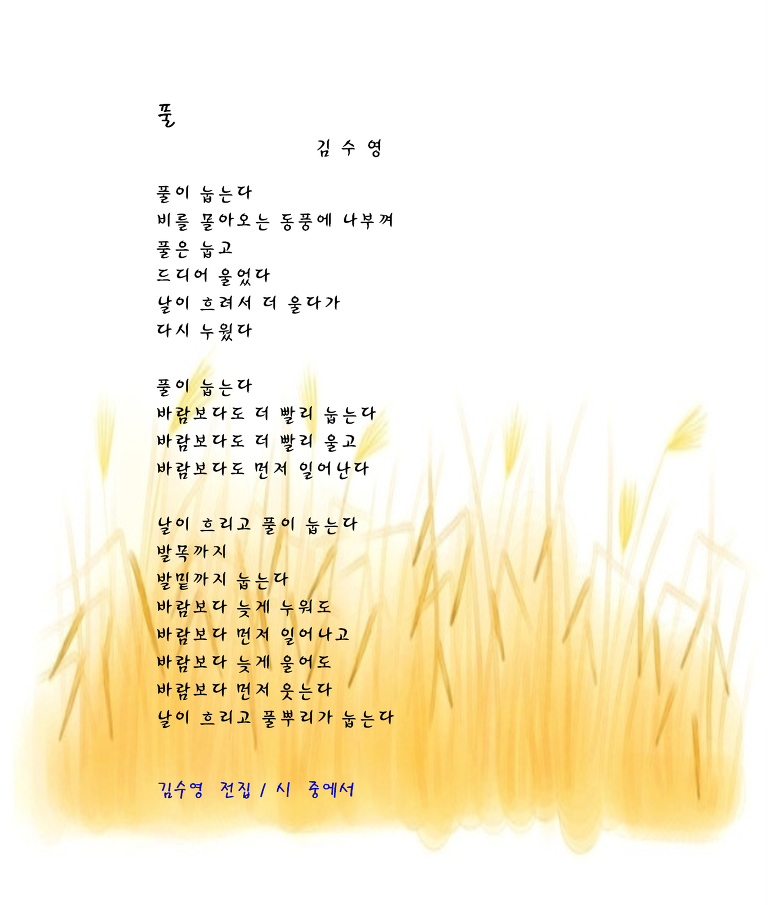 풀
김 수 영
풀이 눕는다
비를 몰아오는 동풍에 나부껴
풀은 눕고
드디어 울었다
날이 흐려서 더 울다가
다시 누웠다
풀이 눕는다
바람보다도 더 빨리 눕는다
바람보다도 더 빨리 울고
바람보다도 먼저 일어난다
날이 흐리고 풀이 눕는다
발목까지
발밑까지 눕는다
바람보다 늦게 누워도
바람보다 먼저 일어나고
바람보다 늦게 울어도
바람보다 먼저 웃는다
날이 흐리고 풀뿌리가 눕는다
김수영 전집 / 시 중에서